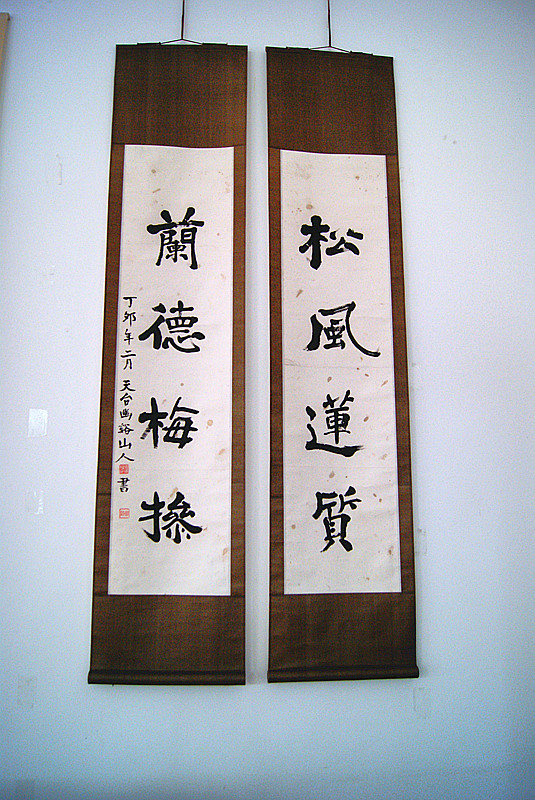 松風蓮質
蘭德梅操
丁卯年二月天台幽谿山人書